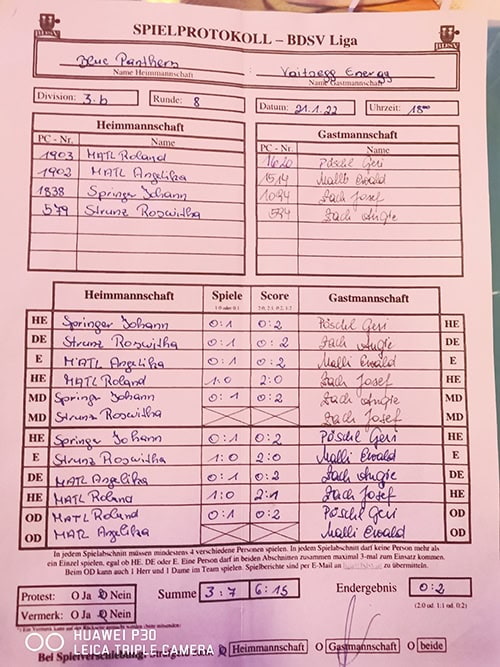 SPIELPROTOKOLL – BDSV Liga
BDSV BDSV
Blue Panthers : Voitsegg Energy
Name Heimmannschaft Name Gastmannschaft
Division: 3.b Runde: 8 Datum: 21.1.22 Uhrzeit: 18⁰⁰
Heimmannschaft Gastmannschaft
PC - Nr. Name PC - Nr. Name
1903 MATL Roland 1620 Pöschl Geri
1902 MATL Angelika 1514 Malli Ewald
1838 Springer Johann 1094 Zach Josef
579 Strunz Roswitha 594 Zach Angie
Heimmannschaft Spiele Score Gastmannschaft
1:0 oder 0:1 2:0, 2:1, 0:2, 1:2
HE Springer Johann 0:1 0:2 Pöschl Geri HE
DE Strunz Roswitha 0:1 0:2 Zach Angie DE
E MATL Angelika 0:1 0:2 Malli Ewald E
HE MATL Roland 1:0 2:0 Zach Josef HE
MD Springer Johann 0:1 0:2 Zach Angie MD
MD Strunz Roswitha Zach Josef MD
HE Springer Johann 0:1 0:2 Pöschl Geri HE
E Strunz Roswitha 1:0 2:0 Malli Ewald E
DE MATL Angelika 0:1 0:2 Zach Angie DE
HE MATL Roland 1:0 2:1 Zach Josef HE
OD MATL Roland 0:1 0:2 Pöschl Geri OD
OD MATL Angelika Malli Ewald OD
In jedem Spielabschnitt müssen mindestens 4 verschiedene Personen spielen. In jedem Spielabschnitt darf keine Person mehr als
ein Einzel spielen, egal ob HE, DE oder E. Eine Person darf in beiden Abschnitten zusammen maximal 3-mal zum Einsatz kommen.
Beim OD kann auch 1 Herr und 1 Dame im Team spielen. Spielberichte sind per E-Mail an zu übermitteln.
Protest: O Ja O Nein Summe 3:7 6:15 Endergebnis 0:2
Vermerk: O Ja O Nein (2:0 od. 1:1 od. 0:2)
HUAWEI P30
LEICA TRIPLE CAMERA
Bei Spielverschiebung: Heimmannschaft O Gastmannschaft O beide